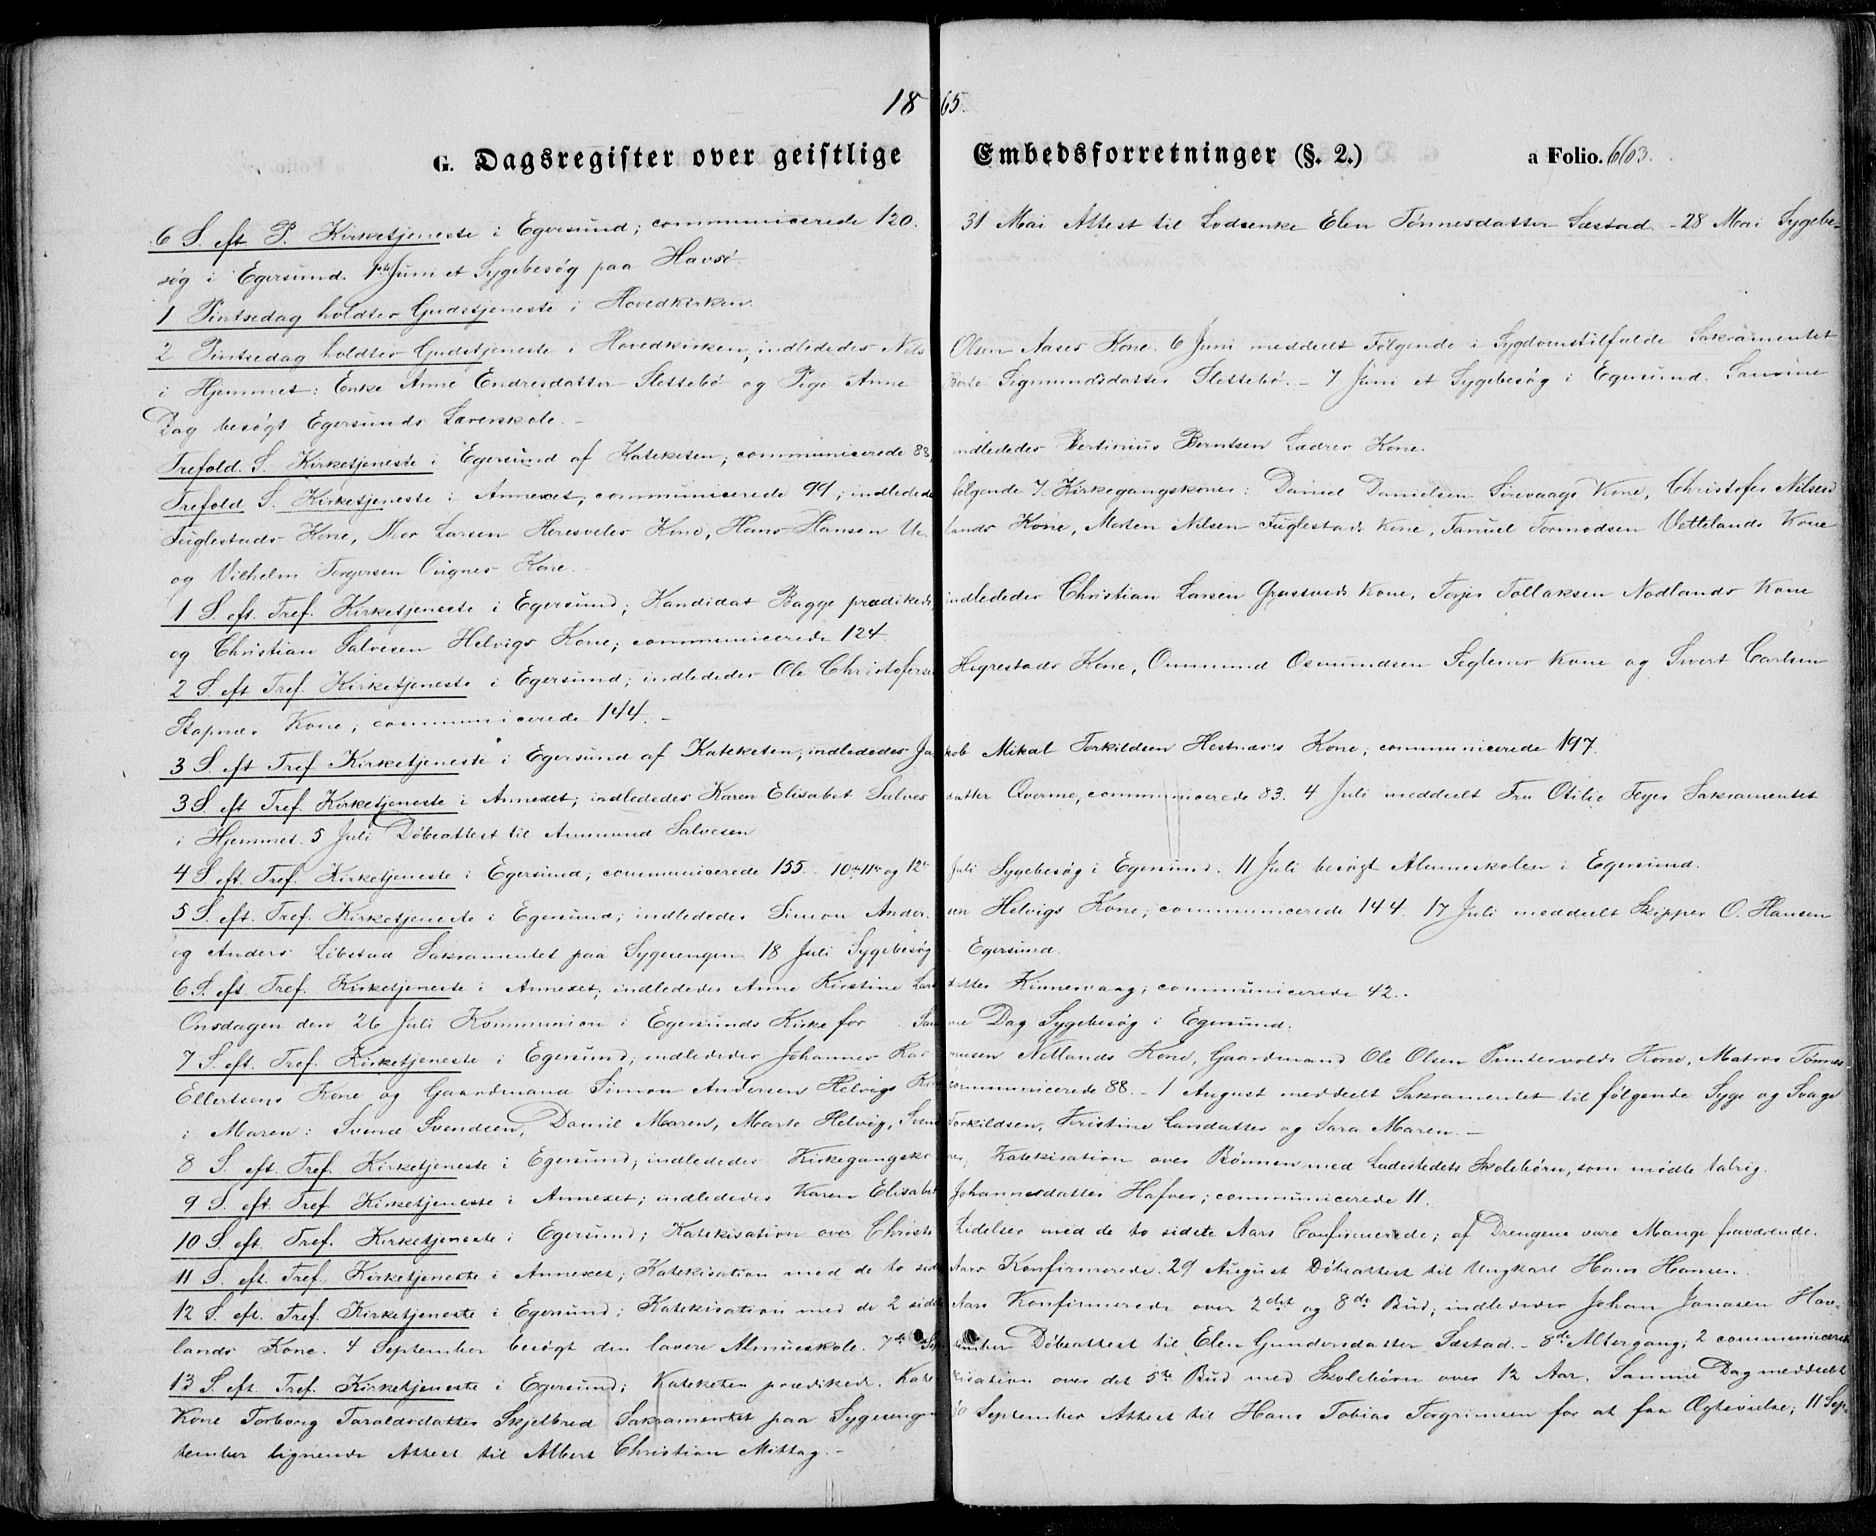 1865.
G. Dagsregister over geistlige Embedsforretninger (§. 2.) a Folio. 663.
6 S. eft P. Kirketjeneste i Egersund; communicerede 120. 31 Mai Attest til Lodsenke Elen Tønnesdatter Sæstad. - 28 Mai Sygebe-
søg i Egersund. 1ste Juni et Sygebesøg paa Havsø.
1 Pintsedag holdtes Gudstjeneste i Hovedkirken.
2 Pintsedag holdtes Gudstjeneste i Hovedkirken, indlededes Nils Olsen Aases Kone. 6 Juni meddelt Følgende i Sygdomstilfælde Sakramentet
i Hjemmet: Enke Anne Endresdatter Slettebø og Pige Anne Berte Sigmundsdatter Slettebø. - 7 Juni et Sygebesøg i Egersund. Samme
Dag besøgt Egersunds Lærerskole. -
Trefold. S. Kirketjeneste i Egersund af Kateketen; communicerede 83, indlededes Bertinius Berntsen Ladres Kone.
Trefold S. Kirketjeneste i Annexet, communicerede 99; indledede følgende 7 Kirkegangskoner: Daniel Danielsen Sirevaags Kone, Christofer Nilsen
Fuglestads Kone, Thor Larsen Heresveles Kone, Hans Hansen Ue- lands Kone, Morten Nilsen Fuglestads Kone, Tanuel Tormodsen Vettelands Kone
og Vilhelm Torgersen Ougnes Kone.
1 S. eft. Tref. Kirketjeneste i Egersund; Kandidat Bagge prædikede, indlededes Christian Larsen Grøsveds Kone, Torjes Tollaksen Nodlands Kone
og Christian Salvesen Helvigs Kone; communicerede 124.
2 S. eft Tref. Kirketjeneste i Egersund; indlededes Ole Christofersen Hegrestads Kone, Ommund Osmundsen Seglems Kone og Sivert Carlsen
Stapnes Kone; communicerede 144. -
3 S. eft Tref Kirketjeneste i Egersund af Kateketen, indlededes Jakob Mikal Torkildsen Hestnes's Kone, communicerede 197.
3 S. eft Tref. Kirketjeneste i Annexet; indlededes Karen Elisabet Salves datter Qverme, communicerede 83. 4 Juli meddeelt Fru Otilie Feyer Sakramentet
i Hjemmet. 5 Juli Døbeattest til Ammund Salvesen
4 S. eft. Tref. Kirketjeneste i Egersund; communicerede 155. - 10de 11te og 12te Juli Sygebesøg i Egersund. 11 Juli besøgt Almueskolen i Egersund.
5 S. eft. Tref. Kirketjeneste i Egersund; indlededes Simon Ander- sen Helvigs Kone; communicerede 144. 17 Juli meddeelt Skipper O. Hansen
og Anders Løbstad Sakramentet paa Sygesengen. 18 Juli Sygebesøg Egersund.
6 S. eft. Tref. Kirketjeneste i Annexet; indlededes Anne Kirstine Lars datter Kinnesvaag; communicerede 42..
Onsdagen den 26 Juli Kommunion i Egersunds Kirke for . Samme Dag Sygebesøg i Egersund.
7 S. eft. Tref. Kirketjeneste i Egersund; indlededes Johannes Ras- musen Netlands Kone, Gaardmand Ole Olsen Puntervolds Kone, Matros Tønnes
Ellertsens Kone og Gaardmand Simon Andersen Helvigs Kone communicerede 88. - 1 August meddeelt Sakramentet til følgende Syge og Svage
i Maren: Svend Svendsen, Daniel Maren, Marte Helvig, Svend Torkildsen, Kristine Larsdatter og Sara Maren. -
8 S. eft. Tref. Kirketjeneste i Egersund; indlededes Kirkegangsko- ner, Katekisation over Bønnen med Ladestedets Skolebørn, som mødte talrig.
9 S. eft Tref Kirketjeneste i Annexet; indlededes Karen Elisabet Johannesdatter Hafver; communicerede 11.
10 S. eft. Tref. Kirketjeneste i Egersund; Katekisation over Christi Lidelser med de to sidste Aars Confirmerede; af Drengene vare Mange fraværende.
11 S. eft. Tref. Kirketjeneste i Annexet; Katekisation med de to sidste Aars Konfirmerede. 29 August Døbeattest til Ungkarl Hans Hansen.
12 S. eft. Tref Kirketjeneste i Egersund; Katekisation med de 2 sidste Aars Konfirmerede over 2det og 8de Bud; indlededes Johan Jonasen Hav-
lands Kone. 4 September besøgt den lavere Almueskole. 7de September Døbeattest til Elen Gundersdatter Sæstad. - 8de Altergang; 2 communicerede
13 S. eft Tref. Kirketjeneste i Egersund; Kateketen prædikede. Kate- kisation over det 5te Bud med Skolebørn over 12 Aar. Samme Dag meddeelt
Kone Torborg Taraldsdatter Skjelbred Sakramentet paa Sygesengen 10 September Attest til Hans Tobias Torgrimsen for at faa Ægtevielse; 11 Sep-
tember lignende Attest til Albert Christian Mittag. -